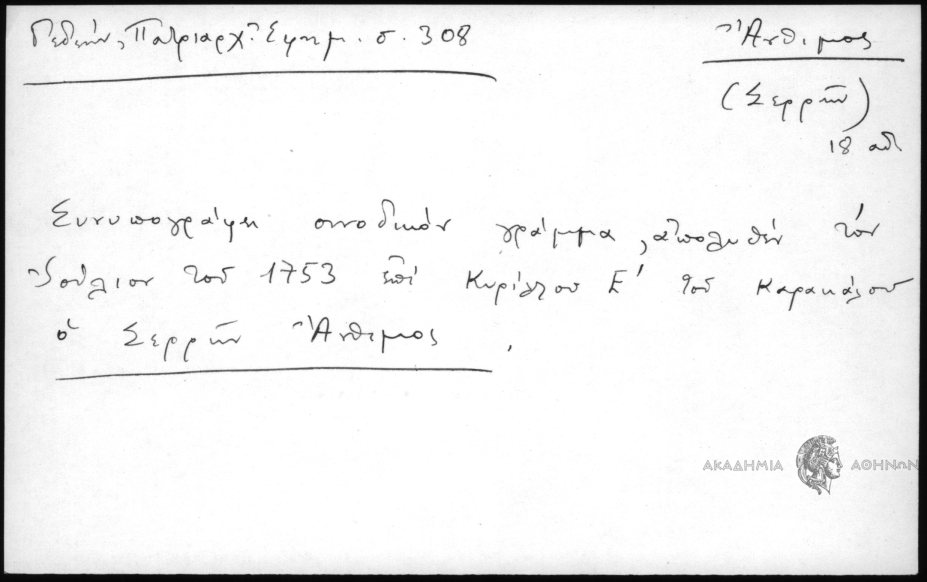 Γεδεών, Πατριαρχ. Εφημ. σ. 308
Ἄνθιμος
(Σερρῶν)
18 αἰ
Συνυπογράφει συνοδικόν γράμμα, ἀπολυθέν τόν
Ἰούλιον τοῦ 1753 ἐπί Κυρίλλου Ε' τοῦ Καρακάλου
ὁ Σερρῶν Ἄνθιμος.
ΑΚΑΔΗΜΙΑ ΑΘΗΝΩΝ